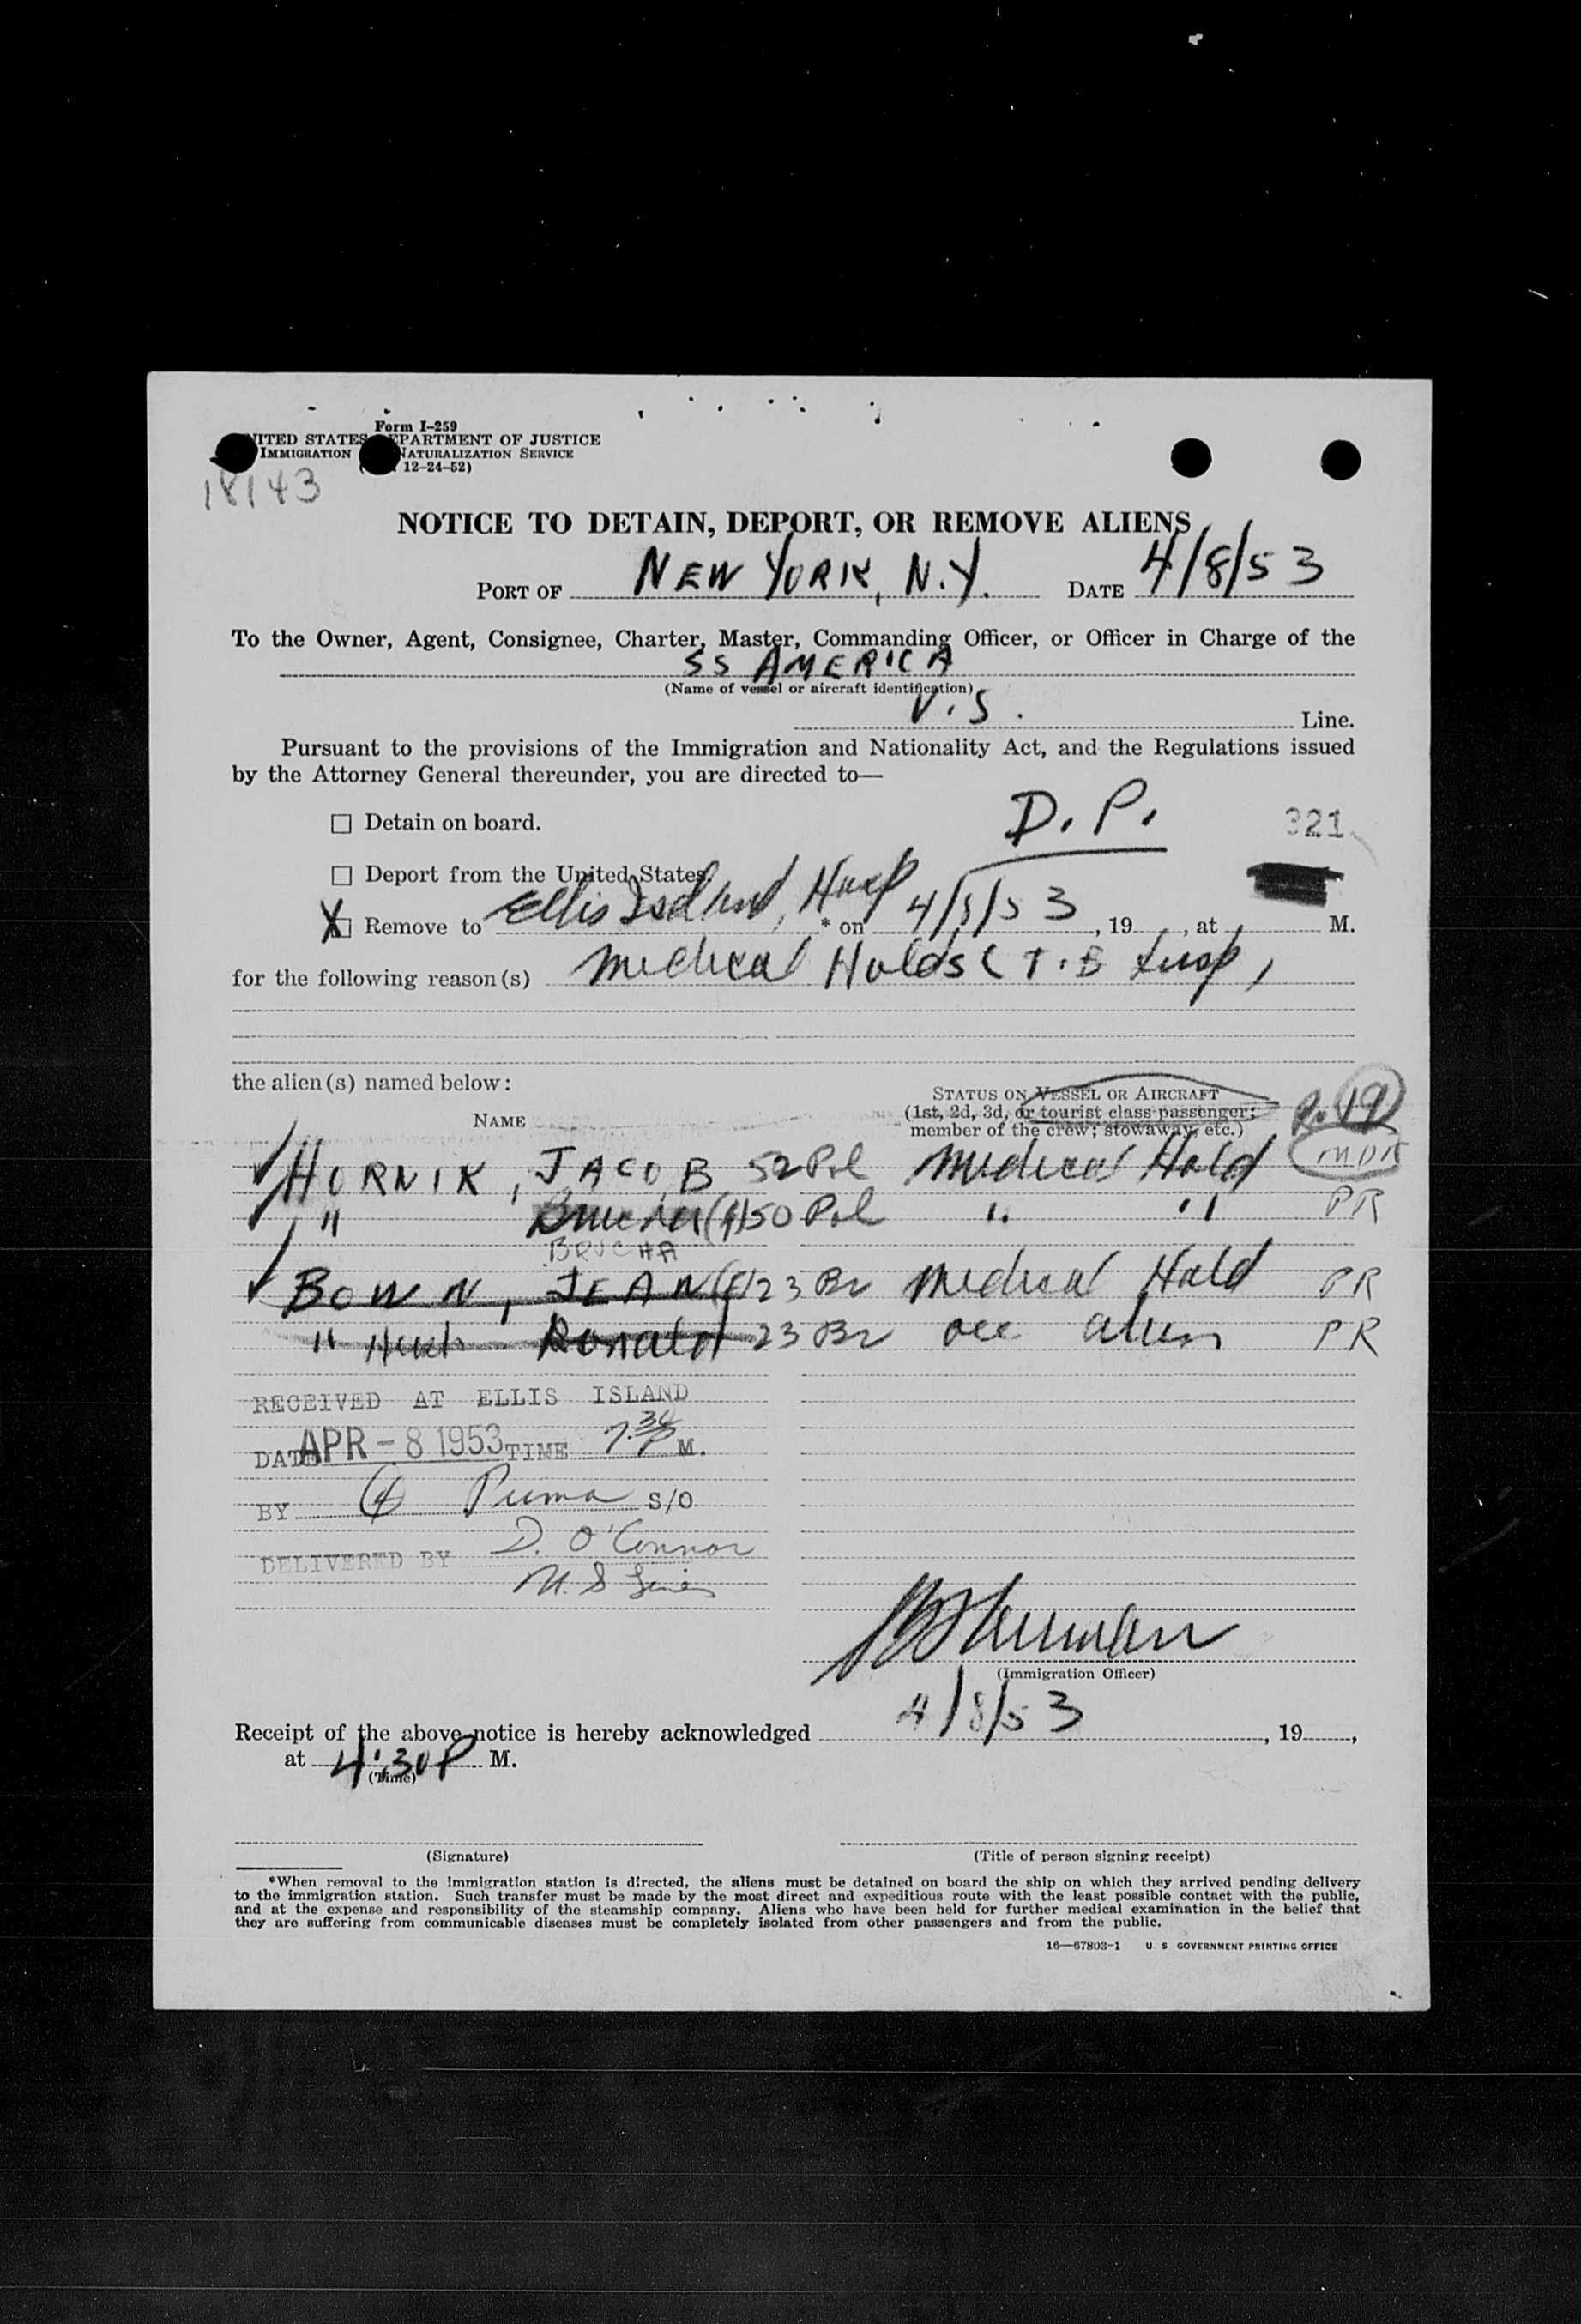 Form I-259
UNITED STATES DEPARTMENT OF JUSTICE
IMMIGRATION NATURALIZATION SERVICE
12-24-52)
18143
NOTICE TO DETAIN, DEPORT, OR REMOVE ALIENS
PORT OF NEW YORK, N.Y. DATE 4/8/53
To the Owner, Agent, Consignee, Charter, Master, Commanding Officer, or Officer in Charge of the
SS AMERICA
(Name of vessel or aircraft identification)
U.S. Line.
Pursuant to the provisions of the Immigration and Nationality Act, and the Regulations issued
by the Attorney General thereunder, you are directed to—
D.P.
☐ Detain on board. 321
☐ Deport from the United States.
X ☐ Remove to Ellis Island, Hosp * on 4/8/53, 19 , at M.
for the following reason(s) Medical Holds (T.B Susp)
the alien(s) named below:
NAME
STATUS ON VESSEL OR AIRCRAFT
(1st, 2d, 3d, or tourist class passenger;
member of the crew; stowaway, etc.)
P. 19
HORNIK, JACOB 52 Pol Medical Hold
" (f) 50 Pol " " PR
BRUCHA
BOWN, JEAN (f) 23 Br Medical Hold PR
" Ronald 23 Br acc alien PR
RECEIVED AT ELLIS ISLAND
DATE APR -8 1953 TIME 7:30 P M.
BY Puma S/O
DELIVERED BY D. O'Connor
U.S Lines
(Immigration Officer)
Receipt of the above notice is hereby acknowledged 4/8/53, 19 ,
at 4:30 P M.
(Time)
(Signature) (Title of person signing receipt)
*When removal to the immigration station is directed, the aliens must be detained on board the ship on which they arrived pending delivery
to the immigration station. Such transfer must be made by the most direct and expeditious route with the least possible contact with the public,
and at the expense and responsibility of the steamship company. Aliens who have been held for further medical examination in the belief that
they are suffering from communicable diseases must be completely isolated from other passengers and from the public.
16—67803-1 U S GOVERNMENT PRINTING OFFICE